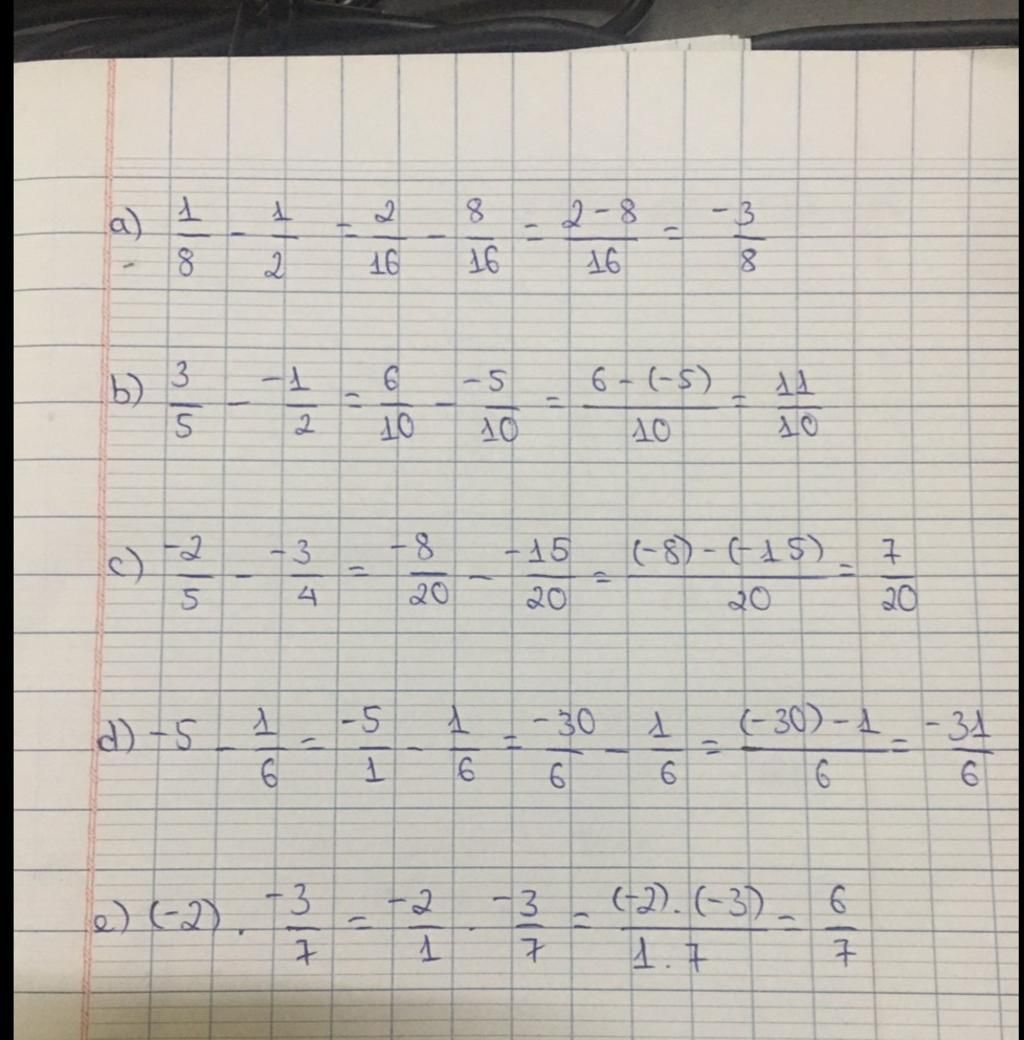 a) 1/8 - 1/2 = 2/16 - 8/16 = (2-8)/16 = -3/8
b) 3/5 - -1/2 = 6/10 - -5/10 = (6-(-5))/10 = 11/10
c) -2/5 - -3/4 = -8/20 - -15/20 = ((-8)-(-15))/20 = 7/20
d) -5 - 1/6 = -5/1 - 1/6 = -30/6 - 1/6 = ((-30)-1)/6 = -31/6
e) (-2) . -3/7 = -2/1 . -3/7 = ((-2).(-3))/(1.7) = 6/7